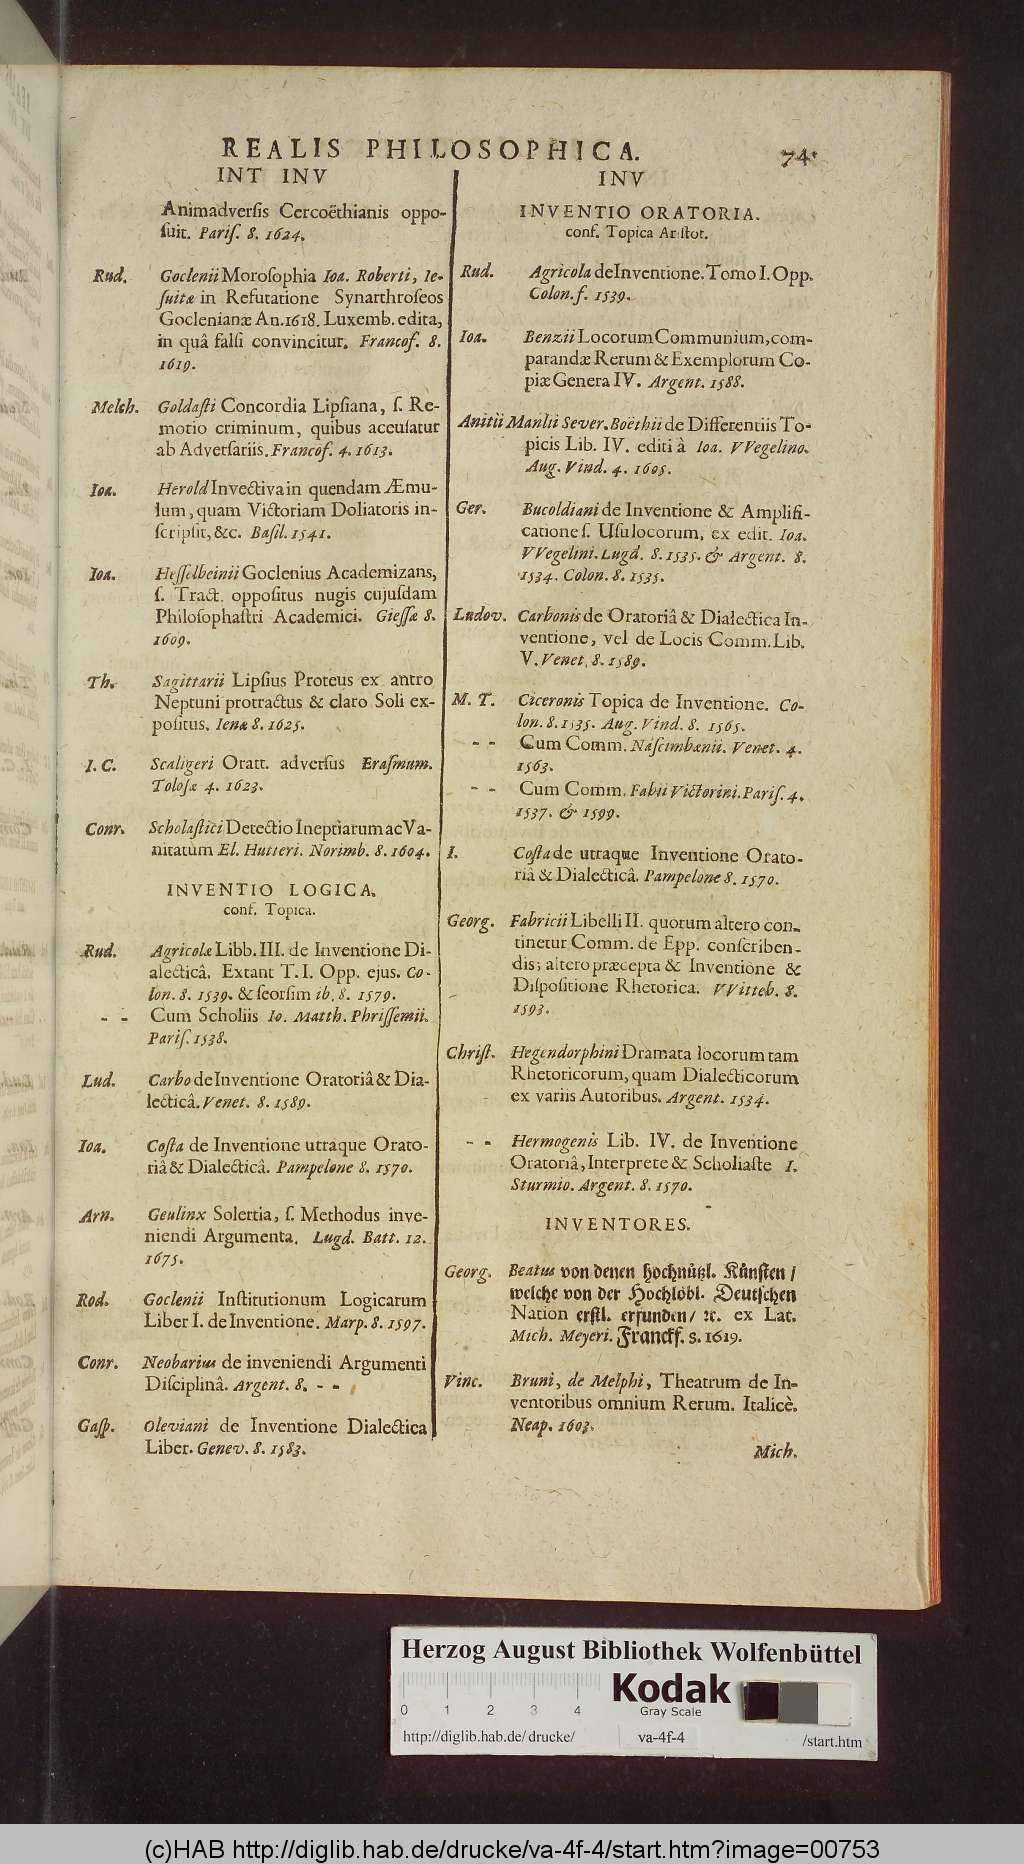 REALIS PHILOSOPHICA. 74.
INT INV
Animadversis Cercoëthianis oppo-
suit. Paris. 8. 1624.
Rud. Goclenii Morosophia Ioa. Roberti, Ie-
suitæ in Refutatione Synarthroseos
Goclenianæ An. 1618. Luxemb. edita,
in quâ falsi convincitur. Francof. 8.
1619.
Melch. Goldasti Concordia Lipsiana, s. Re-
motio criminum, quibus accusatur
ab Adversariis. Francof. 4. 1613.
Ioa. Herold Invectiva in quendam Æmu-
lum, quam Victoriam Doliatoris in-
scripsit, &c. Basil. 1541.
Ioa. Hesselbeinii Goclenius Academizans,
s. Tract. oppositus nugis cujusdam
Philosophastri Academici. Giessæ 8.
1609.
Th. Sagittarii Lipsius Proteus ex antro
Neptuni protractus & claro Soli ex-
positus. Ienæ 8. 1625.
I. C. Scaligeri Oratt. adversus Erasmum.
Tolosæ 4. 1623.
Conr. Scholastici Detectio Ineptiarum ac Va-
nitatum El. Hutteri. Norimb. 8. 1604.
INVENTIO LOGICA.
conf. Topica.
Rud. Agricolæ Libb. III. de Inventione Di-
alecticâ. Extant T. I. Opp. ejus. Co-
lon. 8. 1539. & seorsim ib. 8. 1579.
- - Cum Scholiis Io. Matth. Phrissemii.
Paris. 1538.
Lud. Carbo de Inventione Oratoriâ & Dia-
lecticâ. Venet. 8. 1589.
Ioa. Costa de Inventione utraque Orato-
riâ & Dialecticâ. Pampelone 8. 1570.
Arn. Geulinx Solertia, s. Methodus inve-
niendi Argumenta. Lugd. Batt. 12.
1675.
Rod. Goclenii Institutionum Logicarum
Liber I. de Inventione. Marp. 8. 1597.
Conr. Neobarius de inveniendi Argumenti
Disciplinâ. Argent. 8. - -
Gasp. Oleviani de Inventione Dialectica
Liber. Genev. 8. 1583.
INV
INVENTIO ORATORIA.
conf. Topica Aristot.
Rud. Agricola de Inventione. Tomo I. Opp.
Colon. f. 1539.
Ioa. Benzii Locorum Communium, com-
parandæ Rerum & Exemplorum Co-
piæ Genera IV. Argent. 1588.
Anitii Manlii Sever. Boëthii de Differentiis To-
picis Lib. IV. editi à Ioa. VVegelino.
Aug. Vind. 4. 1605.
Ger. Bucoldiani de Inventione & Amplifi-
catione s. Usu locorum, ex edit. Ioa.
VVegelini. Lugd. 8. 1535. & Argent. 8.
1534. Colon. 8. 1535.
Ludov. Carbonis de Oratoriâ & Dialectica In-
ventione, vel de Locis Comm. Lib.
V. Venet. 8. 1589.
M. T. Ciceronis Topica de Inventione. Co-
lon. 8. 1535. Aug. Vind. 8. 1565.
- - Cum Comm. Nascimbænii. Venet. 4.
1563.
- - Cum Comm. Fabii Victorini. Paris. 4.
1537. & 1599.
I. Costa de utraque Inventione Orato-
riâ & Dialecticâ. Pampelone 8. 1570.
Georg. Fabricii Libelli II. quorum altero con-
tinetur Comm. de Epp. conscriben-
dis; altero præcepta & Inventione &
Dispositione Rhetorica. VVitteb. 8.
1593.
Christ. Hegendorphini Dramata locorum tam
Rhetoricorum, quam Dialecticorum
ex variis Autoribus. Argent. 1534.
- - Hermogenis Lib. IV. de Inventione
Oratoriâ, Interprete & Scholiaste I.
Sturmio. Argent. 8. 1570.
INVENTORES.
Georg. Beatus von denen hochnützl. Künsten /
welche von der Hochlöbl. Deutschen
Nation erstl. erfunden / ꝛc. ex Lat.
Mich. Meyeri. Franckf. 8. 1619.
Vinc. Bruni, de Melphi, Theatrum de In-
ventoribus omnium Rerum. Italicè.
Neap. 1603.
Mich.
Herzog August Bibliothek Wolfenbüttel
0 1 2 3 4
Kodak
Gray Scale
http://diglib.hab.de/drucke/ va-4f-4 /start.htm
(c)HAB http://diglib.hab.de/drucke/va-4f-4/start.htm?image=00753